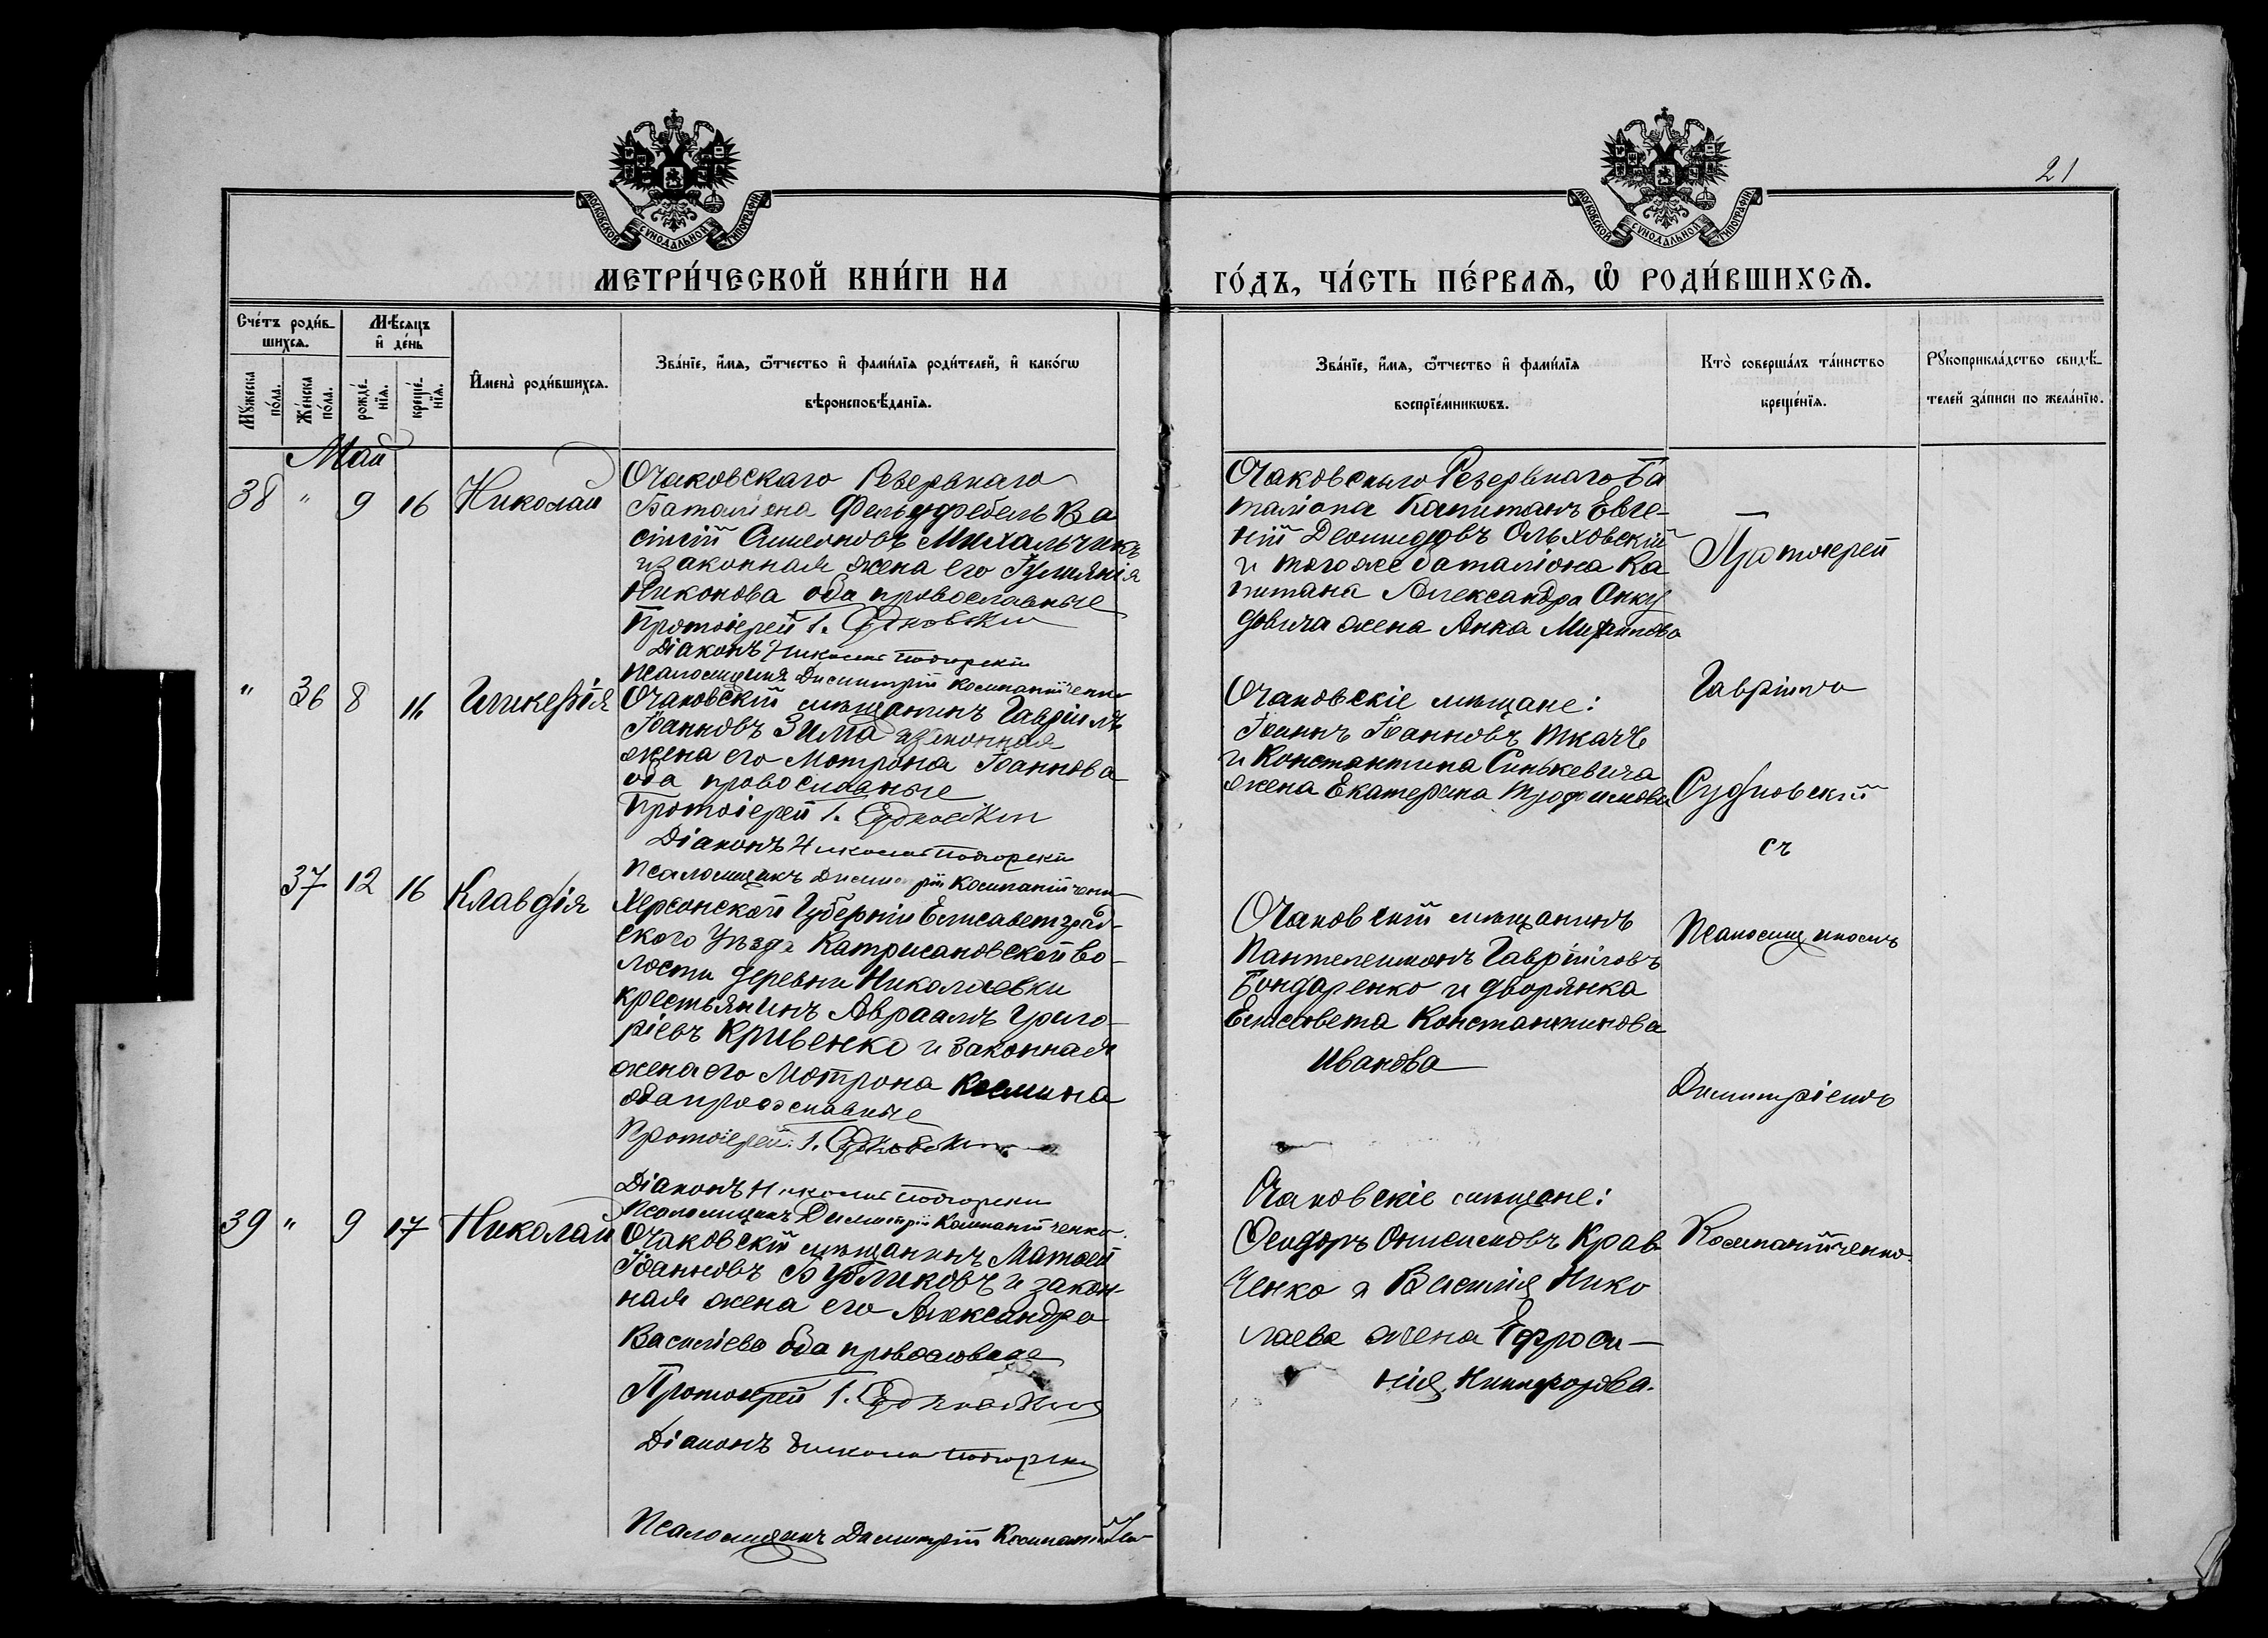 21
МОСКОВСКОЙ СѴНОДАЛЬНОЙ ТИПОГРАФІИ.
МОСКОВСКОЙ СѴНОДАЛЬНОЙ ТИПОГРАФІИ.
МЕТРИ́ЧЕСКОЙ КНИ́ГИ НА
ГО́ДЪ, ЧА́СТЬ ПЕ́РВАѦ, Ѡ РОДИ́ВШИХСѦ.
Сче́тъ роди́в-
шихсѧ.
Мꙋ́жеска
по́ла.
Же́нска
по́ла.
Мѣ́сѧцъ
и҆ де́нь
рожде́-
нїѧ.
креще́-
нїѧ.
И҆мена̀ роди́вшихсѧ.
Зва́нїе, и҆́мѧ, ѻ҆́тчество и҆ фами́лїѧ роди́телей, и҆ како́гѡ
вѣроисповѣ́данїѧ.
Зва́нїе, и҆́мѧ, ѻ҆́тчество и҆ фами́лїѧ
воспрїе́мникѡвъ.
Кто̀ соверша́лъ та́инство
креще́нїѧ.
Рꙋкоприкла́дство свидѣ́-
телей за́писи по жела́нїю.
Май
38 " 9 16 Николай
Очаковскаго Резервнаго
Баталіона Фельдфебель Ва
силій Симеоновъ Михальчикъ
и законная жена его Іуліанія
Никонова оба православные
Протоіерей І. Судковскій
Діаконъ Николай Подгорскій
Псаломщикъ Димитрій Компанійченко
Очаковскаго Резервнаго Ба
таліона Капитанъ Евге-
ній Леонидовъ Ольховскій
и того же баталіона Ка
питана Александра Анку
довича жена Анна
Протоіерей
" 36 8 16 Гликерія
Очаковскій мѣщанинъ Гавріилъ
Іоанновъ Зима и законная
жена его Мотрона Іоаннова
оба православные
Протоіерей І. Судковскій
Діаконъ Николай Подгорскій
Псаломщикъ Димитрій Компанійченко
Очаковскіе мѣщане:
Іоаннъ Іоанновъ Ткачъ
и Константина Синькевича
жена Екатерина Трофимова
Гавріилъ
Судковскій
съ
37 12 16 Клавдія
Херсонской Губерніи Елисаветград-
ского Уѣзда Катрисановской во-
лости деревни Николаевки
крестьянинъ Авраамъ Григо-
ріевъ Кривенко и законная
жена его Мотрона Космина
оба православные
Протоіерей І. Судковскій
Діаконъ Николай Подгорскій
Псаломщикъ Димитрій Компанійченко.
Очаковскій мѣщанинъ
Пантелеимонъ Гавріиловъ
Бондаренко и дворянка
Елисавета Константинова
Иванова
Псаломщикомъ
Димитріемъ
39 " 9 17 Николай
Очаковскій мѣщанинъ Матѳей
Іоанновъ Бубликовъ и закон-
ная жена его Александра
Василіева оба православные
Протоіерей І. Судковскій
Діаконъ Николай Подгорскій
Псаломщикъ Димитрій Компанійченко
Очаковскіе мѣщане:
Ѳеодоръ Онисимовъ Крав
ченко и Василія Нико
лаева жена Ефроси-
нія Никифорова.
Компанійченко.